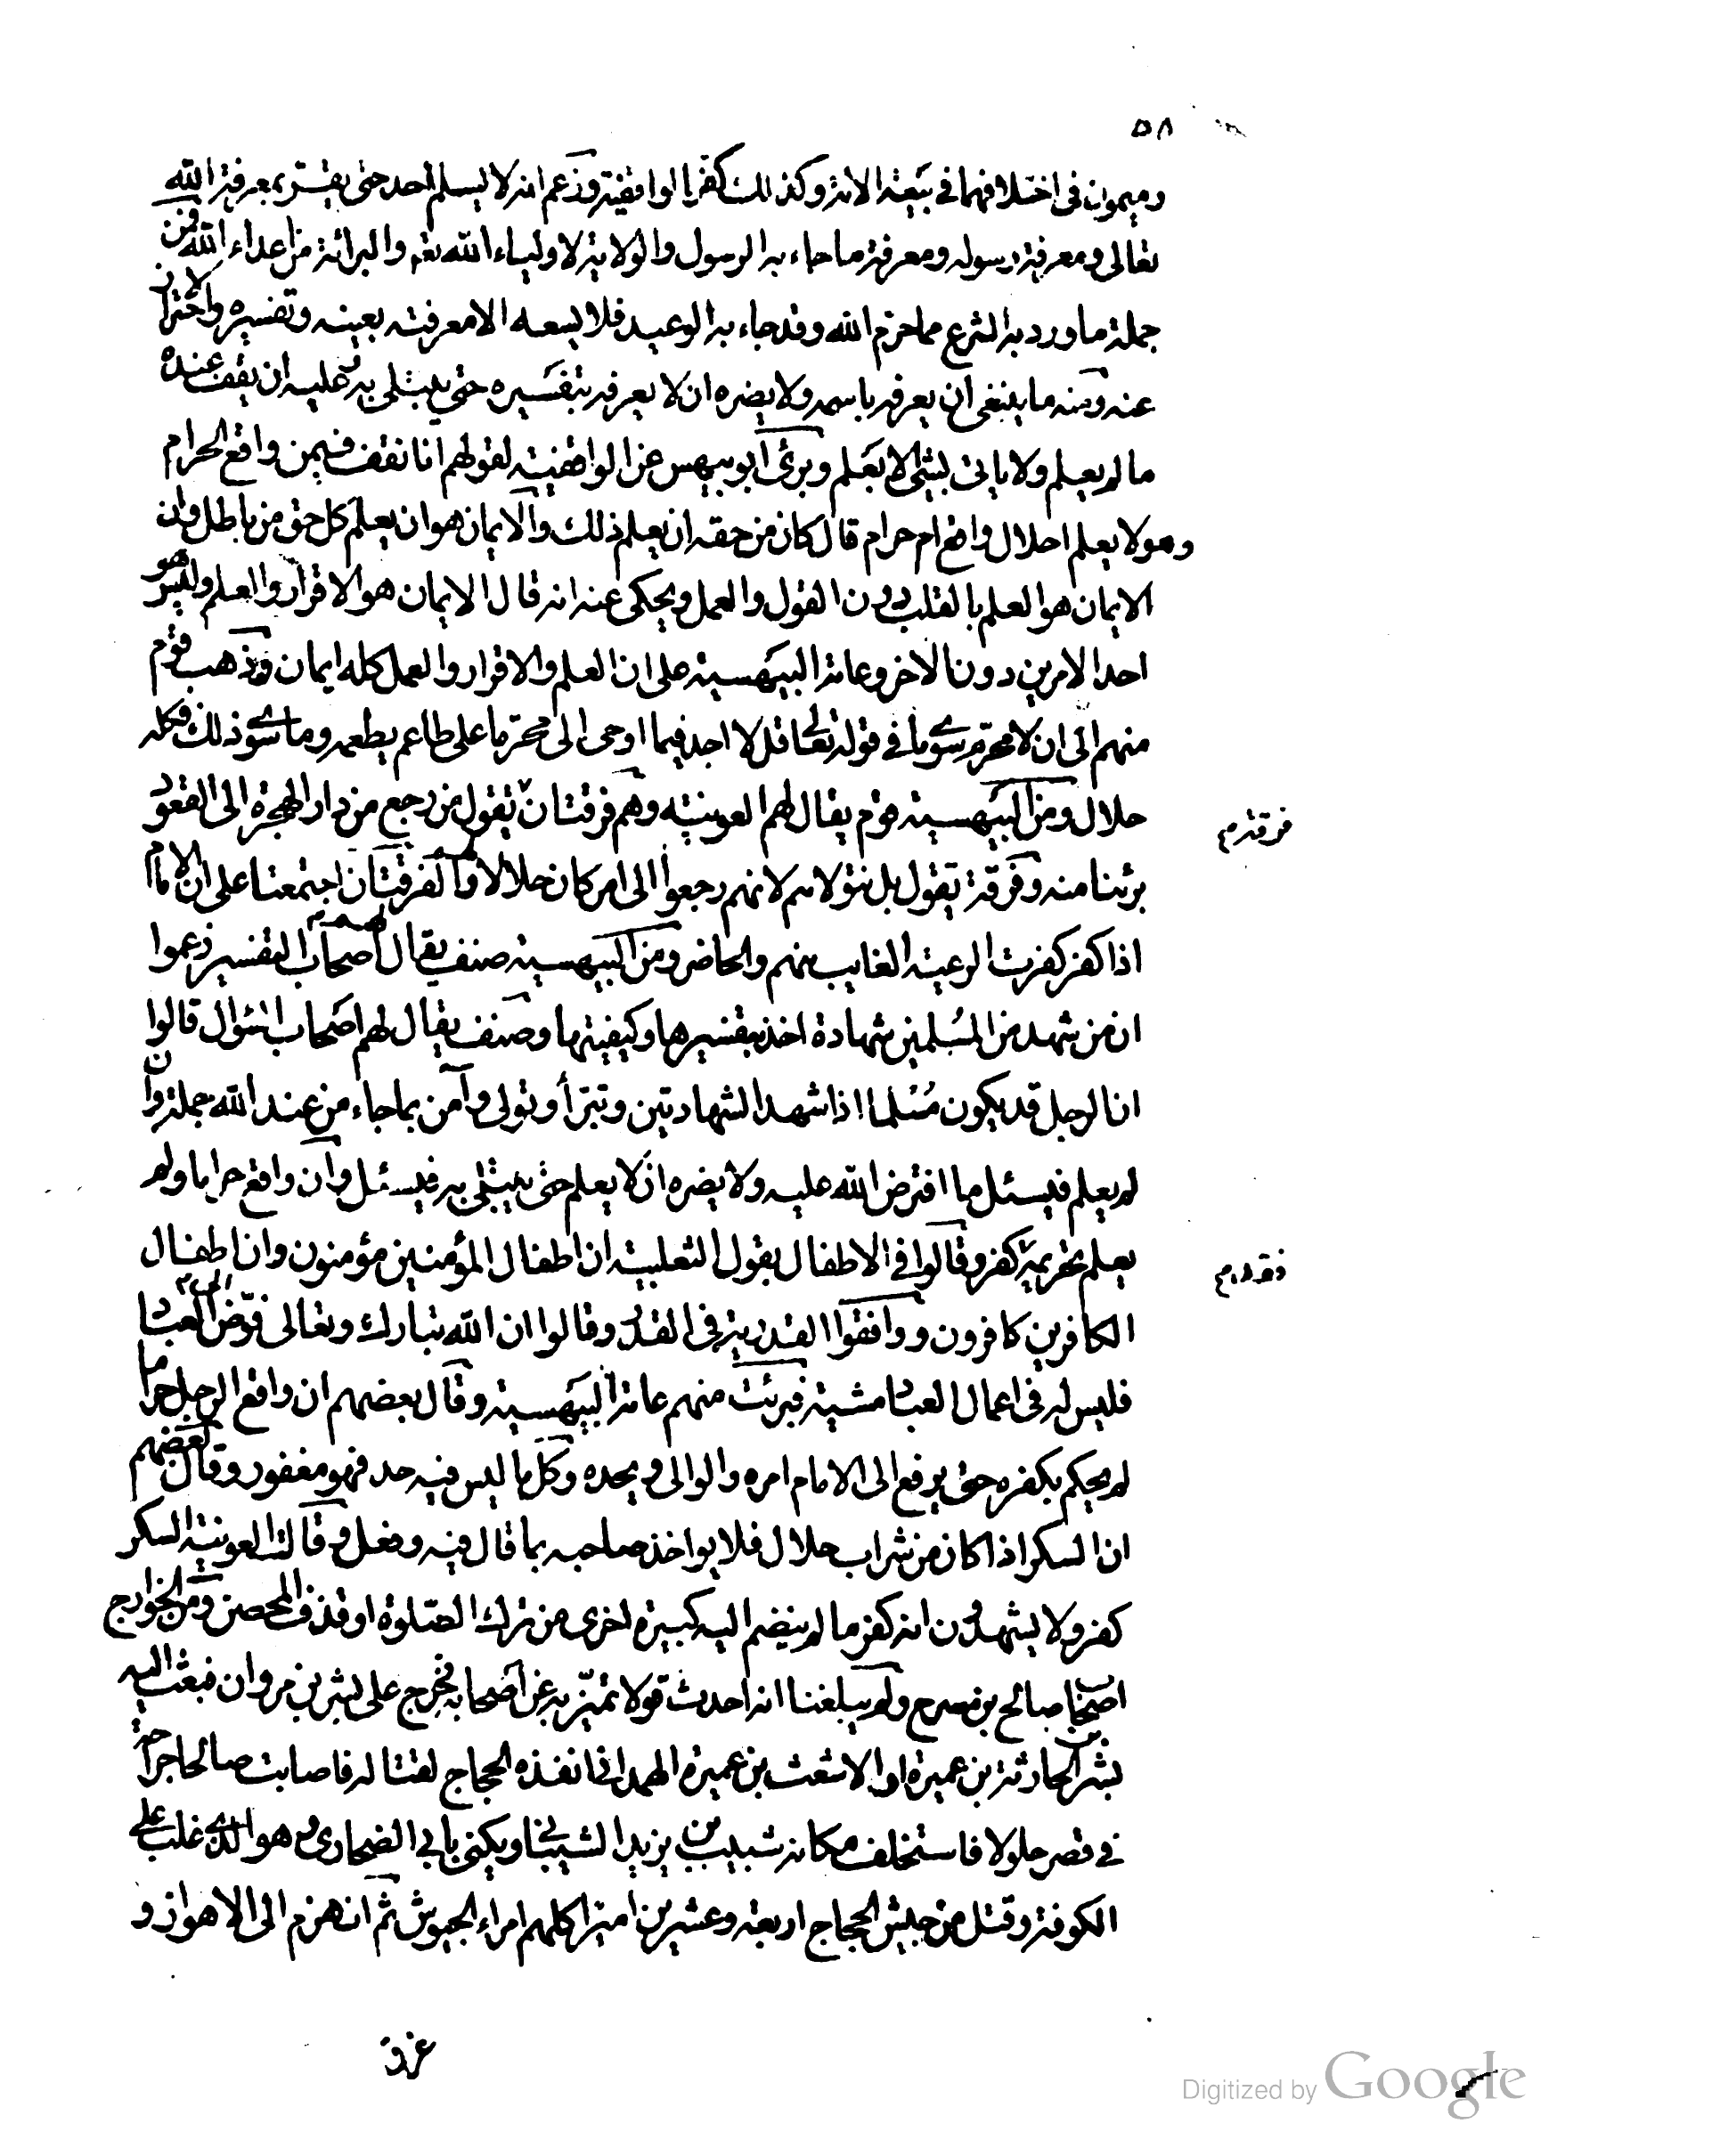 ٥٨
وميمون في اختلافهما في بيعة الامة وكذلك كفر بالواقفية وزعم انه لا يسلم احد حتى يقر بمعرفة الله
تعالى ومعرفة رسوله ومعرفة ما جاء به الرسول والولاية لاولياء الله تعم والبرائة من اعداء الله فمن
جملة ما ورد به الشرع مما حرم الله وقد جاء به الوعيد فلا يسعه الا معرفته بعينه وتفسيره والاحتراز
عنه ومنه ما ينبغي ان يعرفه باسمه ولا يضره ان لا يعرفه بتفسيره حتى يبتلى به وعليه ان يقف عنده
ما لم يعلم ولا ياتى بشئ الا بعلم وبرئ ابو بيهس عن الواقفية لقولهم انا نقف فيمن واقع الحرام
وهو لا يعلم احلال واقع ام حرام قال كان من حقه ان يعلم ذلك والايمان هو ان يعلم كل حق من باطل وان
الايمان هو العلم بالقلب دون القول والعمل ويحكى عنه انه قال الايمان هو الاقرار والعلم وليس هو
احد الامرين دون الاخر وعامة البيهسية على ان العلم والاقرار والعمل كله ايمان وذهب قوم
منهم الى ان لا محرم سوى ما في قوله تعالى قل لا اجد فيما اوحى الى محرما على طاعم يطعمه وما سوى ذلك فكله
حلال ومن البيهسية قوم يقال لهم العونية وهم فرقتان تقول من رجع من دار الهجرة الى القعود
فرقة م
برئنا منه وفرقة تقول بل نتولاهم لانهم رجعوا الى امر كان حلالا والفرقتان اجتمعتا على ان الامام
اذا كفر كفرت الرعية الغايب منهم والحاضر ومن البيهسية صنف يقال لهم اصحاب التفسير زعموا
ان من شهد من المسلمين شهادة اخذ بتفسيرها وكيفيتها وصنف يقال لهم اصحاب السؤال قالوا
ان الرجل قد يكون مسلما اذا شهد الشهادتين وتبرأ وتولى وآمن بما جاء من عند الله جملة وان
لم يعلم فيسئل ما افترض الله عليه ولا يضره ان لا يعلم حتى يبتلى به فيسئل وان واقع حراما ولم
يعلم تحريمه كفر وقالوا في الاطفال بقول الثعلبية ان اطفال المؤمنين مؤمنون وان اطفال
الكافرين كافرون ووافقوا القدرية في القدر وقالوا ان الله تبارك وتعالى فوض الى العباد
فليس له في اعمال العباد مشية فبرئت منهم عامة البيهسية وقال بعضهم ان واقع الرجل حراما
لم يحكم بكفره حتى يرفع الى الامام امره والوالى ويحده وكل ما ليس فيه حد فهو مغفور وقال بعضهم
ان السكر اذا كان من شراب حلال فلا يواخذ صاحبه بما قال فيه وفعل وقالت العونية السكر
كفر ولا يشهدون انه كفر ما لم ينضم اليه كبيرة اخرى من ترك الصلوة او قذف المحصن ومن الخوارج
اصحاب صالح بن مسرح ولم يبلغنا انه احدث قولا تميز به عن اصحابه فخرج على بشر بن مروان فبعث اليه
بشر الحارث بن عميرة او الاشعث بن عميرة الهمداني انفذه الحجاج لقتاله فاصابت صالحا جراحة
في قصر جلولا فاستخلف مكانه شبيب بن يزيد الشيباني ويكنى بابى الضحارى وهو الذى غلب على
الكوفة وقتل من جيش الحجاج اربعة وعشرين اميرا كلهم امراء الجيوش ثم انهزم الى الاهواز و
غرق
Digitized by Google